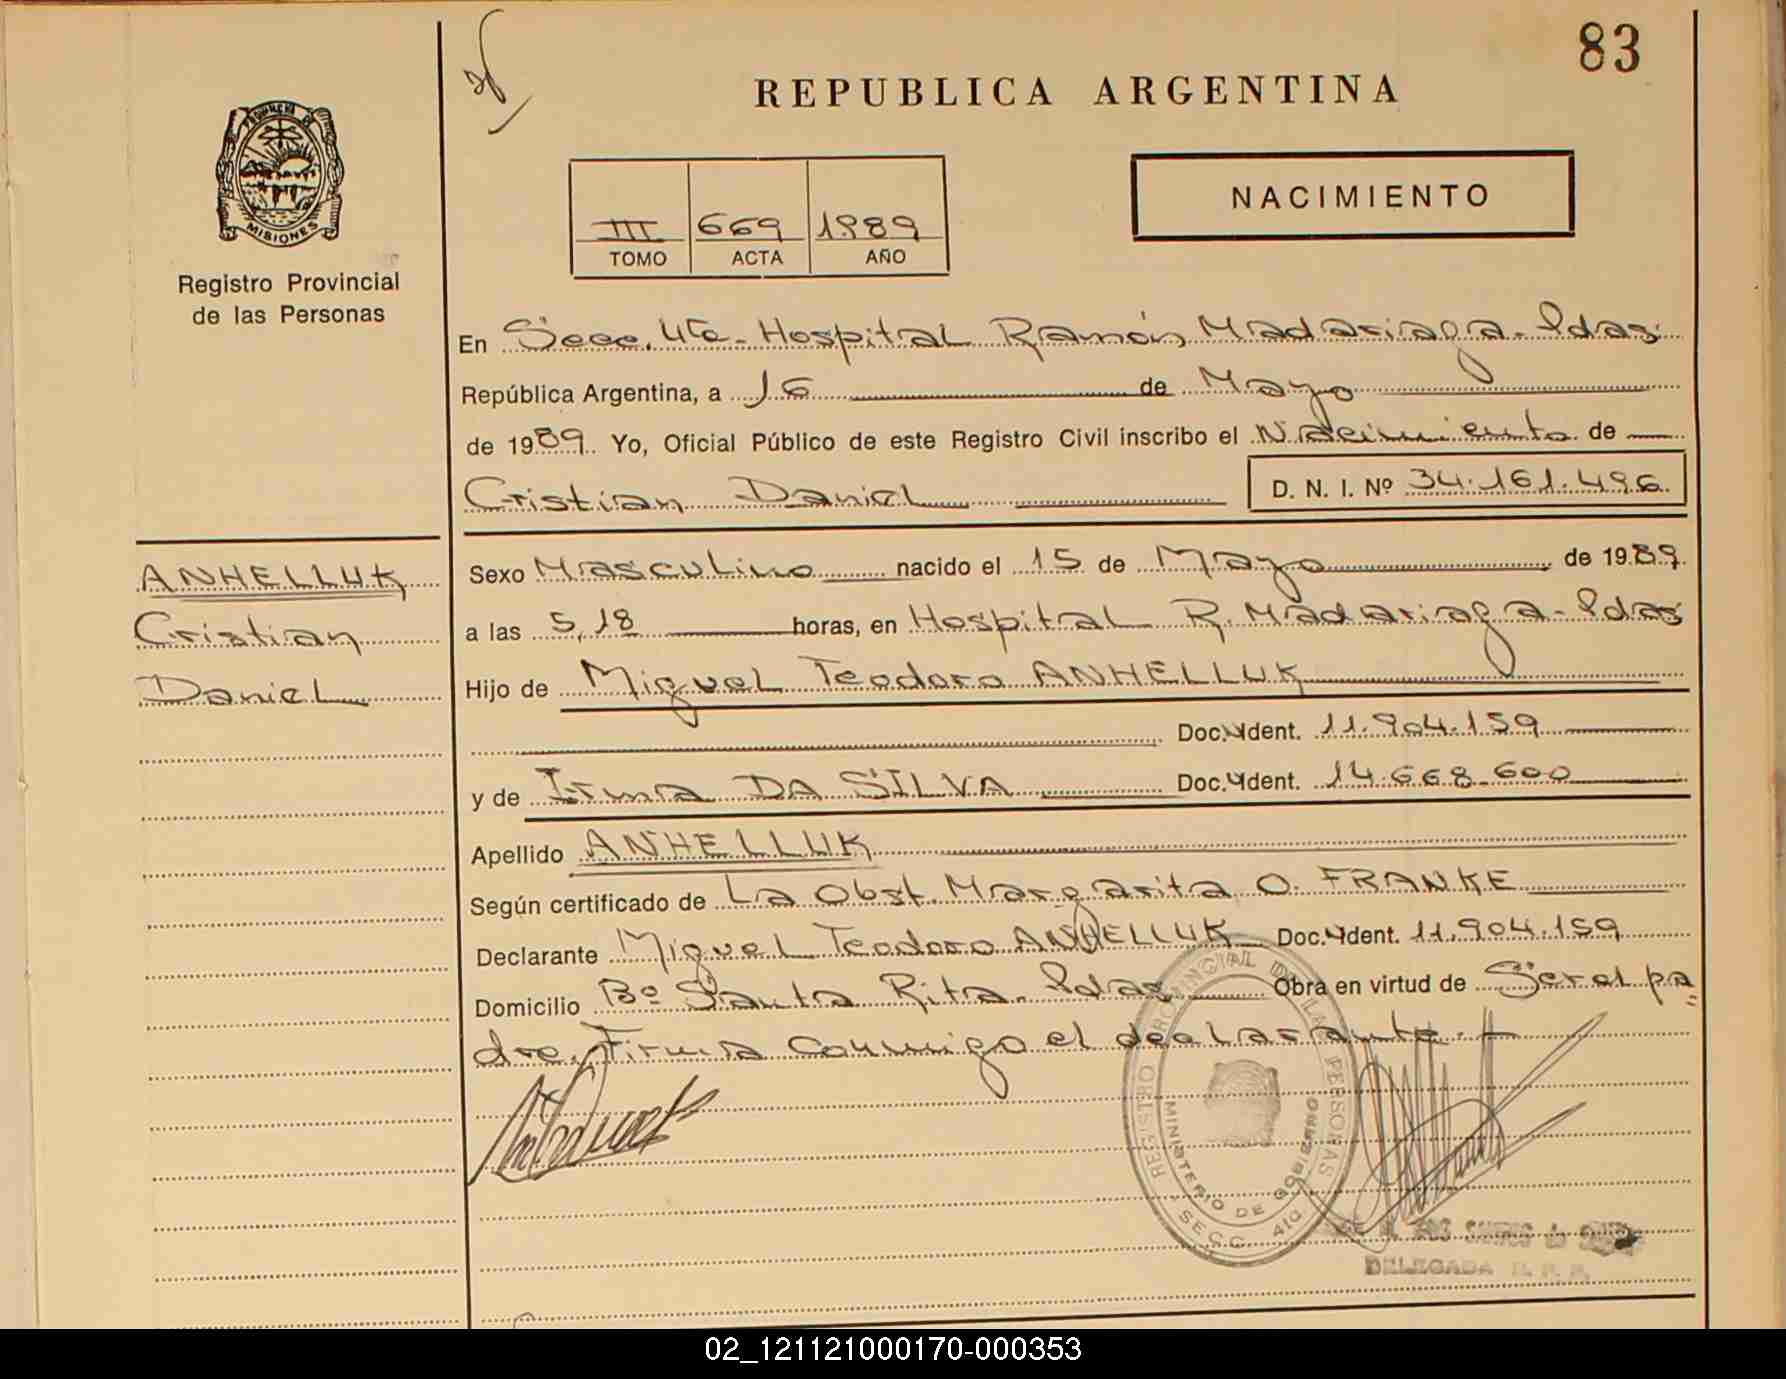 83
REPUBLICA ARGENTINA
PROVINCIA DE
MISIONES
Registro Provincial
de las Personas
NACIMIENTO
III 669 1989
TOMO ACTA AÑO
En Secc. 4ta - Hospital Ramón Madariaga - Pdas.
República Argentina, a 16 de Mayo
de 1989. Yo, Oficial Público de este Registro Civil inscribo el Nacimiento de
Cristian Daniel D. N. I. Nº 34.161.496
ANHELLUK
Cristian
Daniel
Sexo Masculino nacido el 15 de Mayo de 1989.
a las 5,18 horas, en Hospital R. Madariaga - Pdas
Hijo de Miguel Teodoro ANHELLUK
Doc. Ident. 11.904.159
y de Irma DA SILVA Doc. Ident. 14.668.600
Apellido ANHELLUK
Según certificado de La Obst. Margarita O. FRANKE
Declarante Miguel Teodoro ANHELLUK Doc. Ident. 11.904.159
Domicilio Bº Santa Rita. Pdas Obra en virtud de Ser el pa=
dre. Firma conmigo el declarante.-
REGISTRO PROVINCIAL DE LAS PERSONAS
MINISTERIO DE GOBIERNO
SECC. 4ta
DOS SANTOS de
DELEGADA R. P. P.
02_121121000170-000353